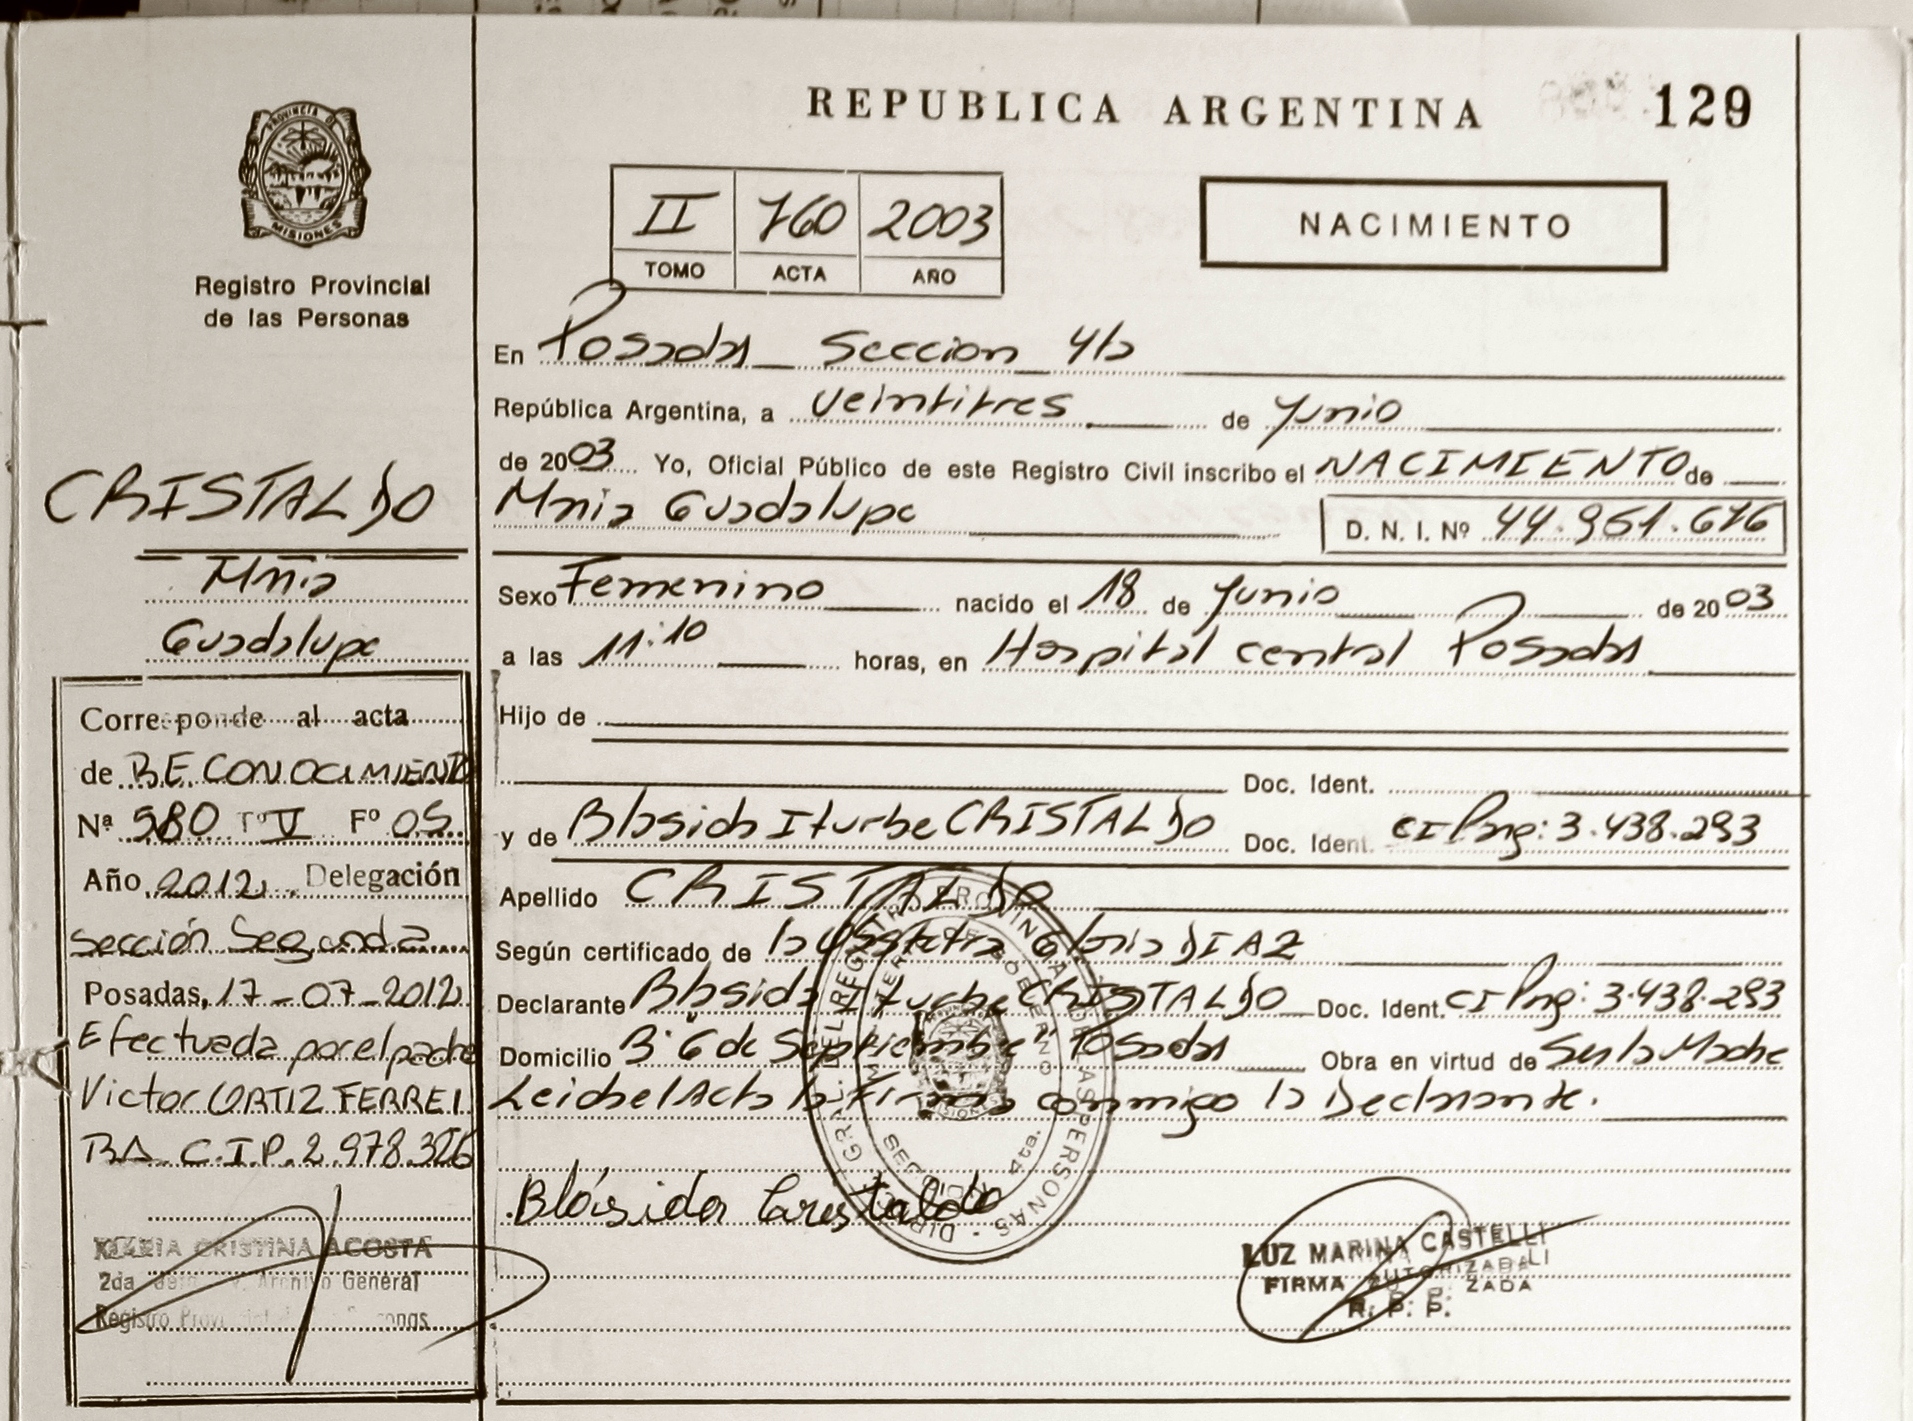 REPUBLICA ARGENTINA
129
PROVINCIA DE
MISIONES
Registro Provincial
de las Personas
II 760 2003
TOMO ACTA AÑO
NACIMIENTO
En Posadas Seccion 4ta
República Argentina, a veintitres de Junio
de 2003 Yo, Oficial Público de este Registro Civil inscribo el NACIMIENTO de
Maria Guadalupe D. N. I. Nº 44.951.676
Sexo Femenino nacido el 18 de Junio de 2003
a las 11:10 horas, en Hospital central Posadas
Hijo de
Doc. Ident.
y de Blasida Iturbe CRISTALDO Doc. Ident. CI Parg: 3.438.293
Apellido CRISTALDO
Según certificado de la Obstetra Gloria DIAZ
Declarante Blasida Iturbe CRISTALDO Doc. Ident. CI Parg: 3.438.293
Domicilio Bº "6 de Septiembre" Posadas Obra en virtud de Ser la Madre
Leida el Acta la Firma conmigo la Declarante.
Blásida Crestaldo
LUZ MARINA CASTELLI
FIRMA AUTORIZADA
R. P. P.
CRISTALDO
Maria
Guadalupe
Corresponde al acta
de RECONOCIMIENTO
Nª 980 Tº V Fº 05
Año 2012 Delegación
Sección Segunda
Posadas, 17-07-2012
Efectuada por el padre
Victor ORTIZ FERREI
RA C.I.P. 2.978.326
MARIA CRISTINA ACOSTA
2da Archivo General
Registro
SECCION 4ta.